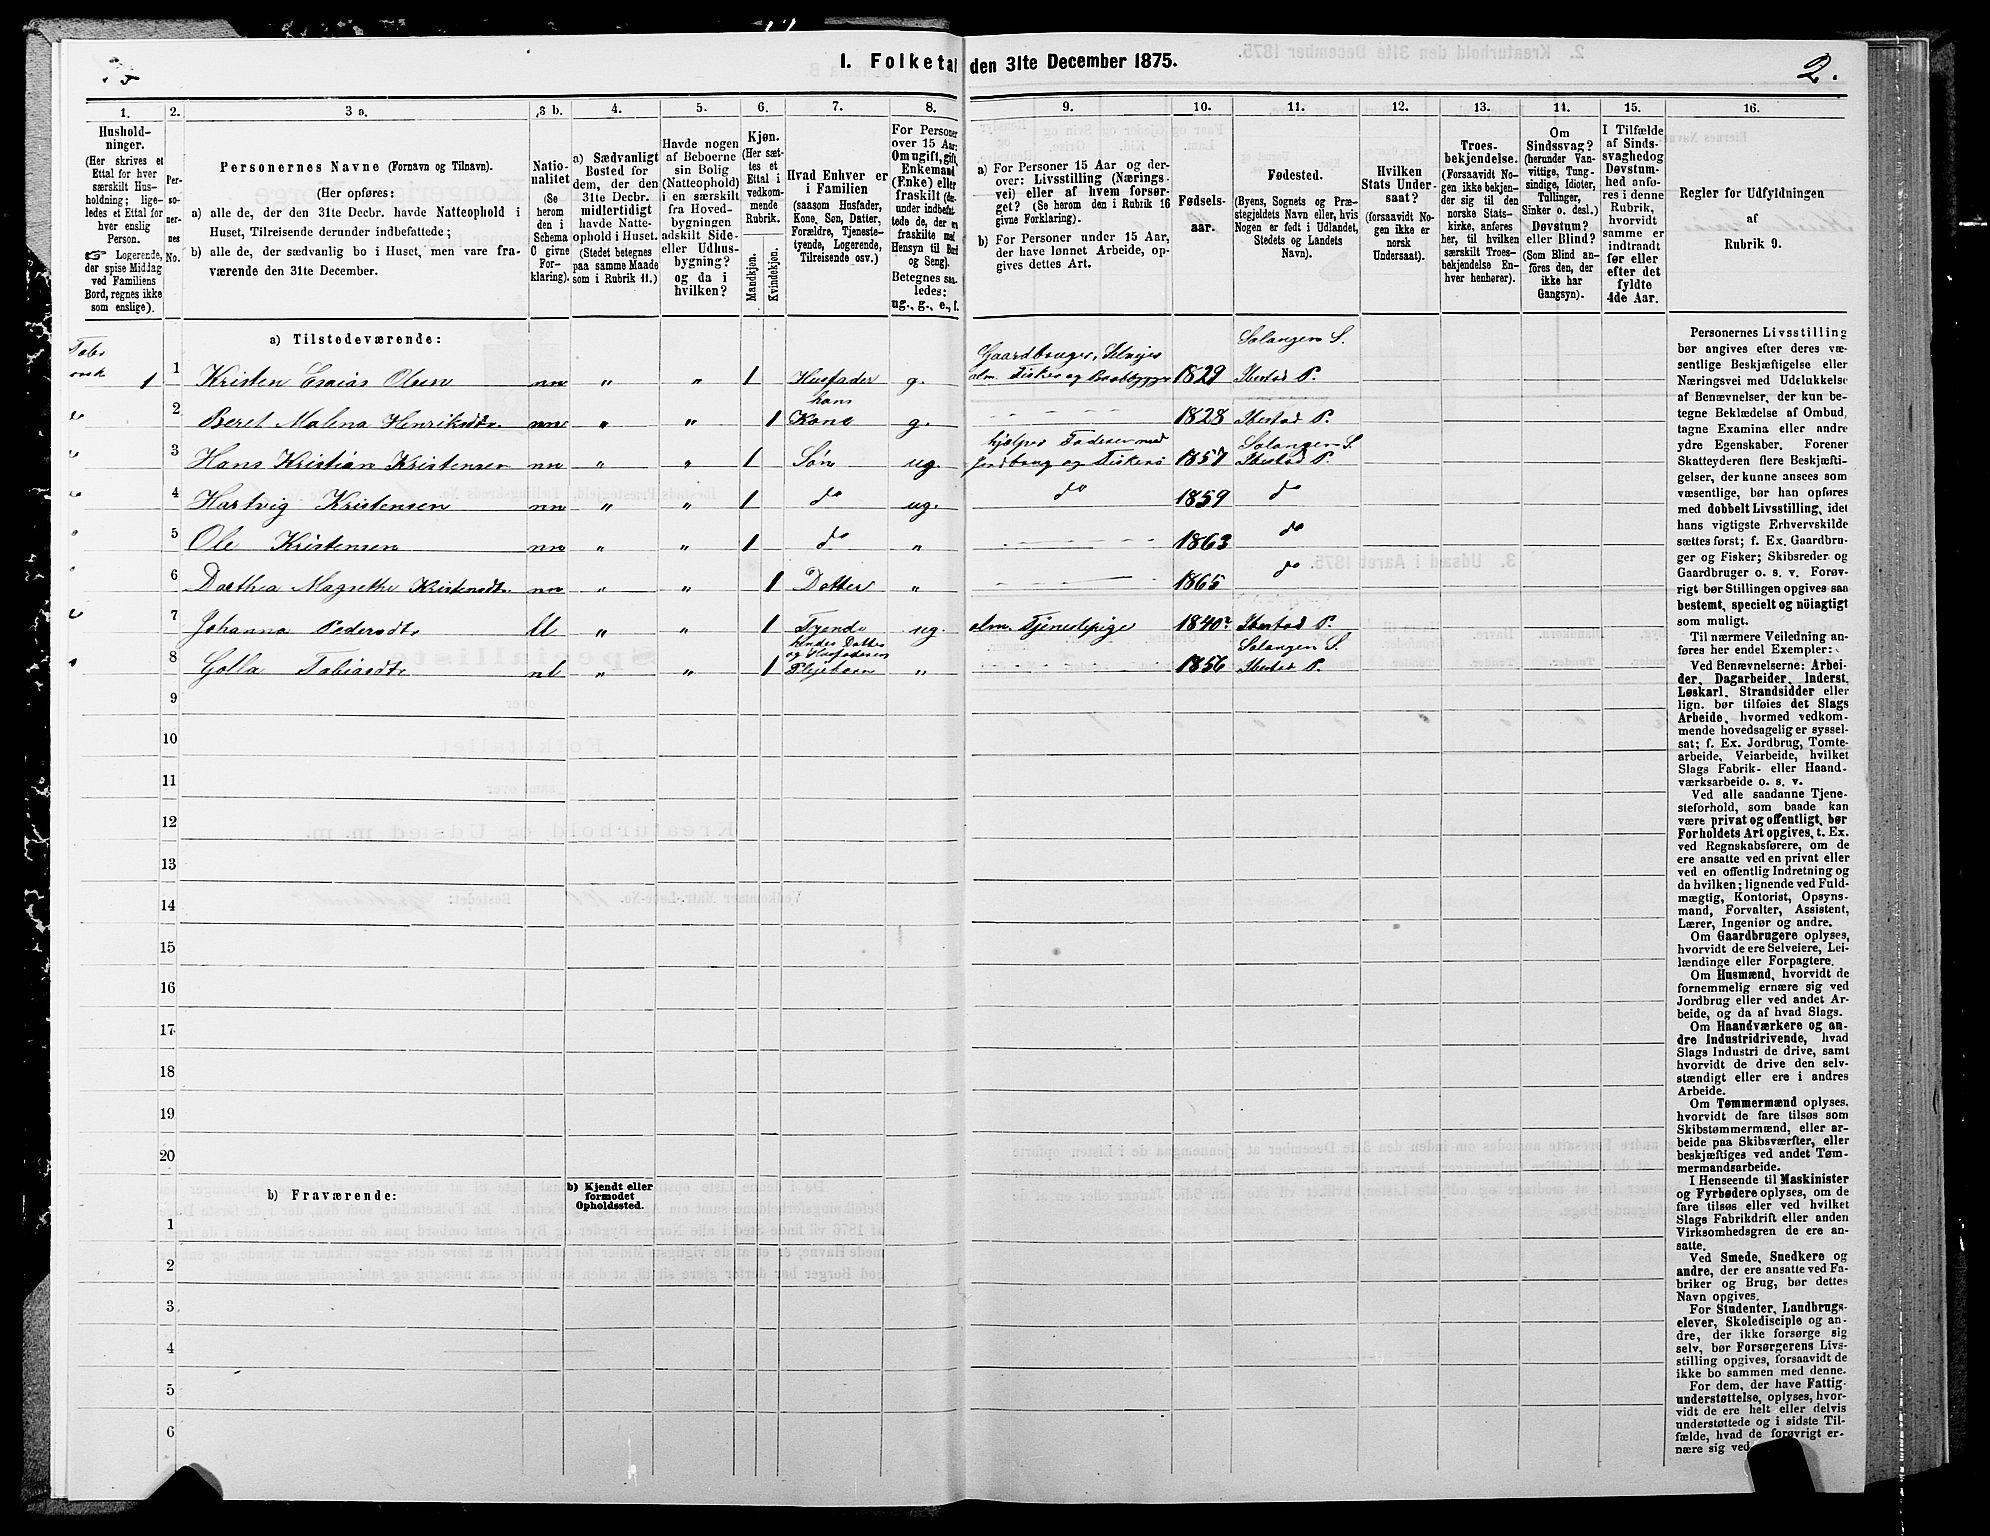 1. Folketal den 31te December 1875.
2.
1.
Hushold-
ninger.
(Her skrives et
Ettal for hver
særskilt Hus-
holdning; lige-
ledes et Ettal for
hver enslig
Person.
Logerende,
der spise Middag
ved Familiens
Bord, regnes ikke
som enslige).
2.
Per-
so-
ner-
nes
No.
3 a.
Personernes Navne (Fornavn og Tilnavn).
(Her opføres:
a) alle de, der den 31te Decbr. havde Natteophold i
Huset, Tilreisende derunder indbefattede;
b) alle de, der sædvanlig bo i Huset, men vare fra-
værende den 31te December.
3 b.
Natio-
nalitet
(Se
herom
den i
Schema
0 givne
For-
klaring).
4.
a) Sædvanligt
Bosted for
dem, der den
31te Decbr.
midlertidigt
havde Natte-
ophold i Huset.
(Stedet betegnes
paa samme Maade
som i Rubrik 11.)
5.
Havde nogen
af Beboerne
sin Bolig
(Natteophold)
i en særskilt
fra Hoved-
bygningen
adskilt Side-
eller Udhus-
bygning?
og da i
hvilken?
6.
Kjøn.
(Her sæt-
tes et
Ettal i
vedkom-
mende
Rubrik.
Mandkjøn.
Kvindekjøn.
7.
Hvad Enhver er
i Familien
(saasom Husfader,
Kone, Søn, Datter,
Forældre, Tjeneste-
tyende, Logerende,
Tilreisende osv.)
8.
For Personer
over 15 Aar:
Om ugift, gift,
Enkemand
(Enke) eller
fraskilt (der-
under indbefat-
tede de, der ere
fraskilte med
Hensyn til Bord
og Seng).
Betegnes saa-
ledes:
ug., g., e., f.
9.
a) For Personer 15 Aar og der-
over: Livsstilling (Nærings-
vei) eller af hvem forsør-
get? (Se herom den i Rubrik 16
givne Forklaring).
b) For Personer under 15 Aar,
der have lønnet Arbeide, op-
gives dettes Art.
10.
Fødsels-
aar.
11.
Fødested.
(Byens, Sognets og Præ-
stegjeldets Navn eller, hvis
Nogen er født i Udlandet,
Stedets og Landets
Navn).
12.
Hvilken
Stats Under-
saat?
(forsaavidt No-
gen ikke er
norsk
Undersaat).
13.
Troes-
bekjendelse.
(Forsaavidt No-
gen ikke bekjen-
der sig til den
norske Stats-
kirke, anføres
her, til hvilken
særskilt Troes-
bekjendelse En-
hver henhører).
14.
Om
Sindssvag?
(herunder Van-
vittige, Tung-
sindige, Idioter,
Tullinger,
Sinker o. desl.)
Døvstum?
eller Blind?
(Som Blind an-
føres den, der
ikke har
Gangsyn).
15.
I Tilfælde
af Sinds-
svaghed og
Døvstum-
hed anfø-
res i denne
Rubrik,
hvorvidt
samme er
indtraadt
før eller
efter det
fyldte
4de Aar.
16.
Regler for Udfyldningen
af
Rubrik 9.
a) Tilstedeværende:
1 1 Kristen Esaias Olsen nn „ „ 1 Husfader g. Gaardbruger, Selveier 1829 Salangen S. Ibestad P.
2 Beret Malena Henriksdtr. nn „ „ 1 hans Kone g. 1828 Ibestad P.
3 Hans Kristian Kristensen nn „ „ 1 Søn ug. hjelper Faderen med Jordbrug og Fiskeri 1857 Salangen S. Ibestad P.
4 Hartvig Kristensen nn „ „ 1 do ug. do 1859 do
5 Ole Kristensen nn „ „ 1 do „ 1863 do
6 Dorthea Magrethe Kristensdtr. nn „ „ 1 Datter „ 1865 do
7 Johanna Pedersdtr. „ „ 1 Tyende ug. alm. Tjenestepige 1840 Ibestad P.
8 Golla Tobiasdtr. „ „ 1 Plejebarn „ 1856 Salangen S. Ibestad P.
9
10
11
12
13
14
15
16
17
18
19
20
b) Fraværende:
b) Kjendt eller
formodet
Opholdssted.
1
2
3
4
5
6
Personernes Livsstilling
bør angives efter deres væ-
sentlige Beskjæftigelse eller
Næringsvei med Udelukkelse
af Benævnelser, der kun be-
tegne Beklædelse af Ombud,
tagne Examina eller andre
ydre Egenskaber. Forener
Skatteyderen flere Beskjæfti-
gelser, der kunne ansees som
væsentlige, bør han opføres
med dobbelt Livsstilling, idet
hans vigtigste Erhvervskilde
sættes først; f. Ex. Gaardbru-
ger og Fisker; Skibsreder og
Gaardbruger o. s. v. Forøv-
rigt bør Stillingen opgives saa
bestemt, specielt og nøiagtigt
som muligt.
Til nærmere Veiledning an-
føres her endel Exempler:
Ved Benævnelserne: Arbei-
der, Dagarbeider, Inderst,
Løskarl, Strandsidder eller
lign. bør tilføies det Slags
Arbeide, hvormed vedkom-
mende hovedsagelig er syssel-
sat; f. Ex. Jordbrug, Tomte-
arbeide, Veiarbeide, hvilket
Slags Fabrik- eller Haand-
værksarbeide o. s. v.
Ved alle saadanne Tjene-
steforhold, som baade kan
være privat og offentligt, bør
Forholdets Art opgives, t. Ex.
ved Regnskabsførere, om de
ere ansatte ved en privat eller
ved en offentlig Indretning og
da hvilken; lignende ved Fuld-
mægtig, Kontorist, Opsyns-
mand, Forvalter, Assistent,
Lærer, Ingeniør og andre.
Om Gaardbrugere oplyses,
hvorvidt de ere Selveiere, Lei-
lændinge eller Forpagtere.
Om Husmænd, hvorvidt de
fornemmelig ernære sig ved
Jordbrug eller ved andet Ar-
beide, og da af hvad Slags.
Om Haandværkere og an-
dre Industridrivende, hvad
Slags Industri de drive, samt
hvorvidt de drive den selv-
stændigt eller ere i andres
Arbeide.
Om Tømmermænd oplyses,
hvorvidt de fare tilsøs som
Skibstømmermænd, eller ar-
beide paa Skibsværfter, eller
beskjæftiges ved andet Tøm-
mermandsarbeide.
I Henseende til Maskinister
og Fyrbødere oplyses, om de
fare tilsøs eller ved hvilket
Slags Fabrikdrift eller anden
Virksomhedsgren de ere an-
satte.
Ved Smede, Snedkere og
andre, der ere ansatte ved Fa-
briker og Brug, bør dettes
Navn opgives.
For Studenter, Landbrugs-
elever, Skoledisciple og an-
dre, der ikke forsørge sig
selv, bør Forsørgerens Livs-
stilling opgives, forsaavidt de
ikke bo sammen med denne.
For dem, der have Fattig-
understøttelse, oplyses, hvor-
vidt de ere helt eller delvis
understøttede og i sidste Til-
fælde, hvad de forøvrigt er-
nære sig ved